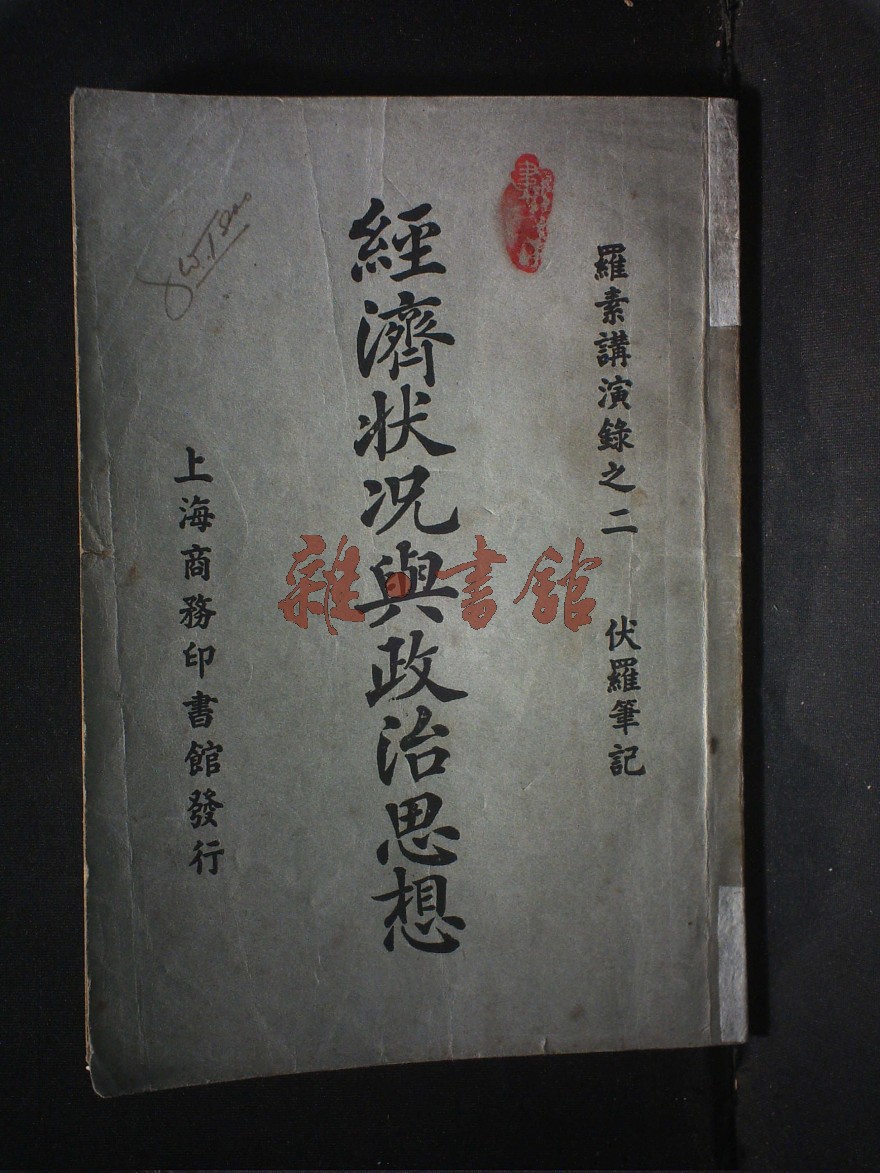 羅素講演錄之二 伏羅筆記
經濟状况與政治思想
上海商務印書館發行
雜·書館